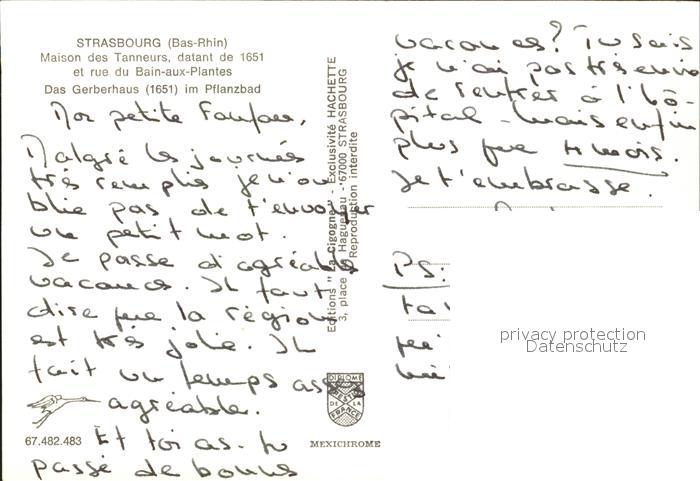 STRASBOURG (Bas-Rhin)
Maison des Tanneurs, datant de 1651
et rue du Bain-aux-Plantes
Das Gerberhaus (1651) im Pflanzbad
Mon petite Fanfan,
Malgré les journées
très remplies je n'ou
blie pas de t'envoyer
un petit mot.
Je passe d'agréable
vacances. Il faut
dire que la région
est très jolie. Il
fait un temps assez
agréable.
Et toi as-tu
passé de bonnes
67.482.483
Editions "La Cigogne" - Exclusivité HACHETTE
3, place Haguenau - 67000 STRASBOURG
Reproduction interdite
DIPLOME
PRESTIGE
DE LA
FRANCE
MEXICHROME
vacances? Tu sais
je n'ai pas très envie
de rentrer à l'hô-
pital - mais enfin
plus que 4 mois.
Je t'embrasse.
PS:
privacy protection
Datenschutz